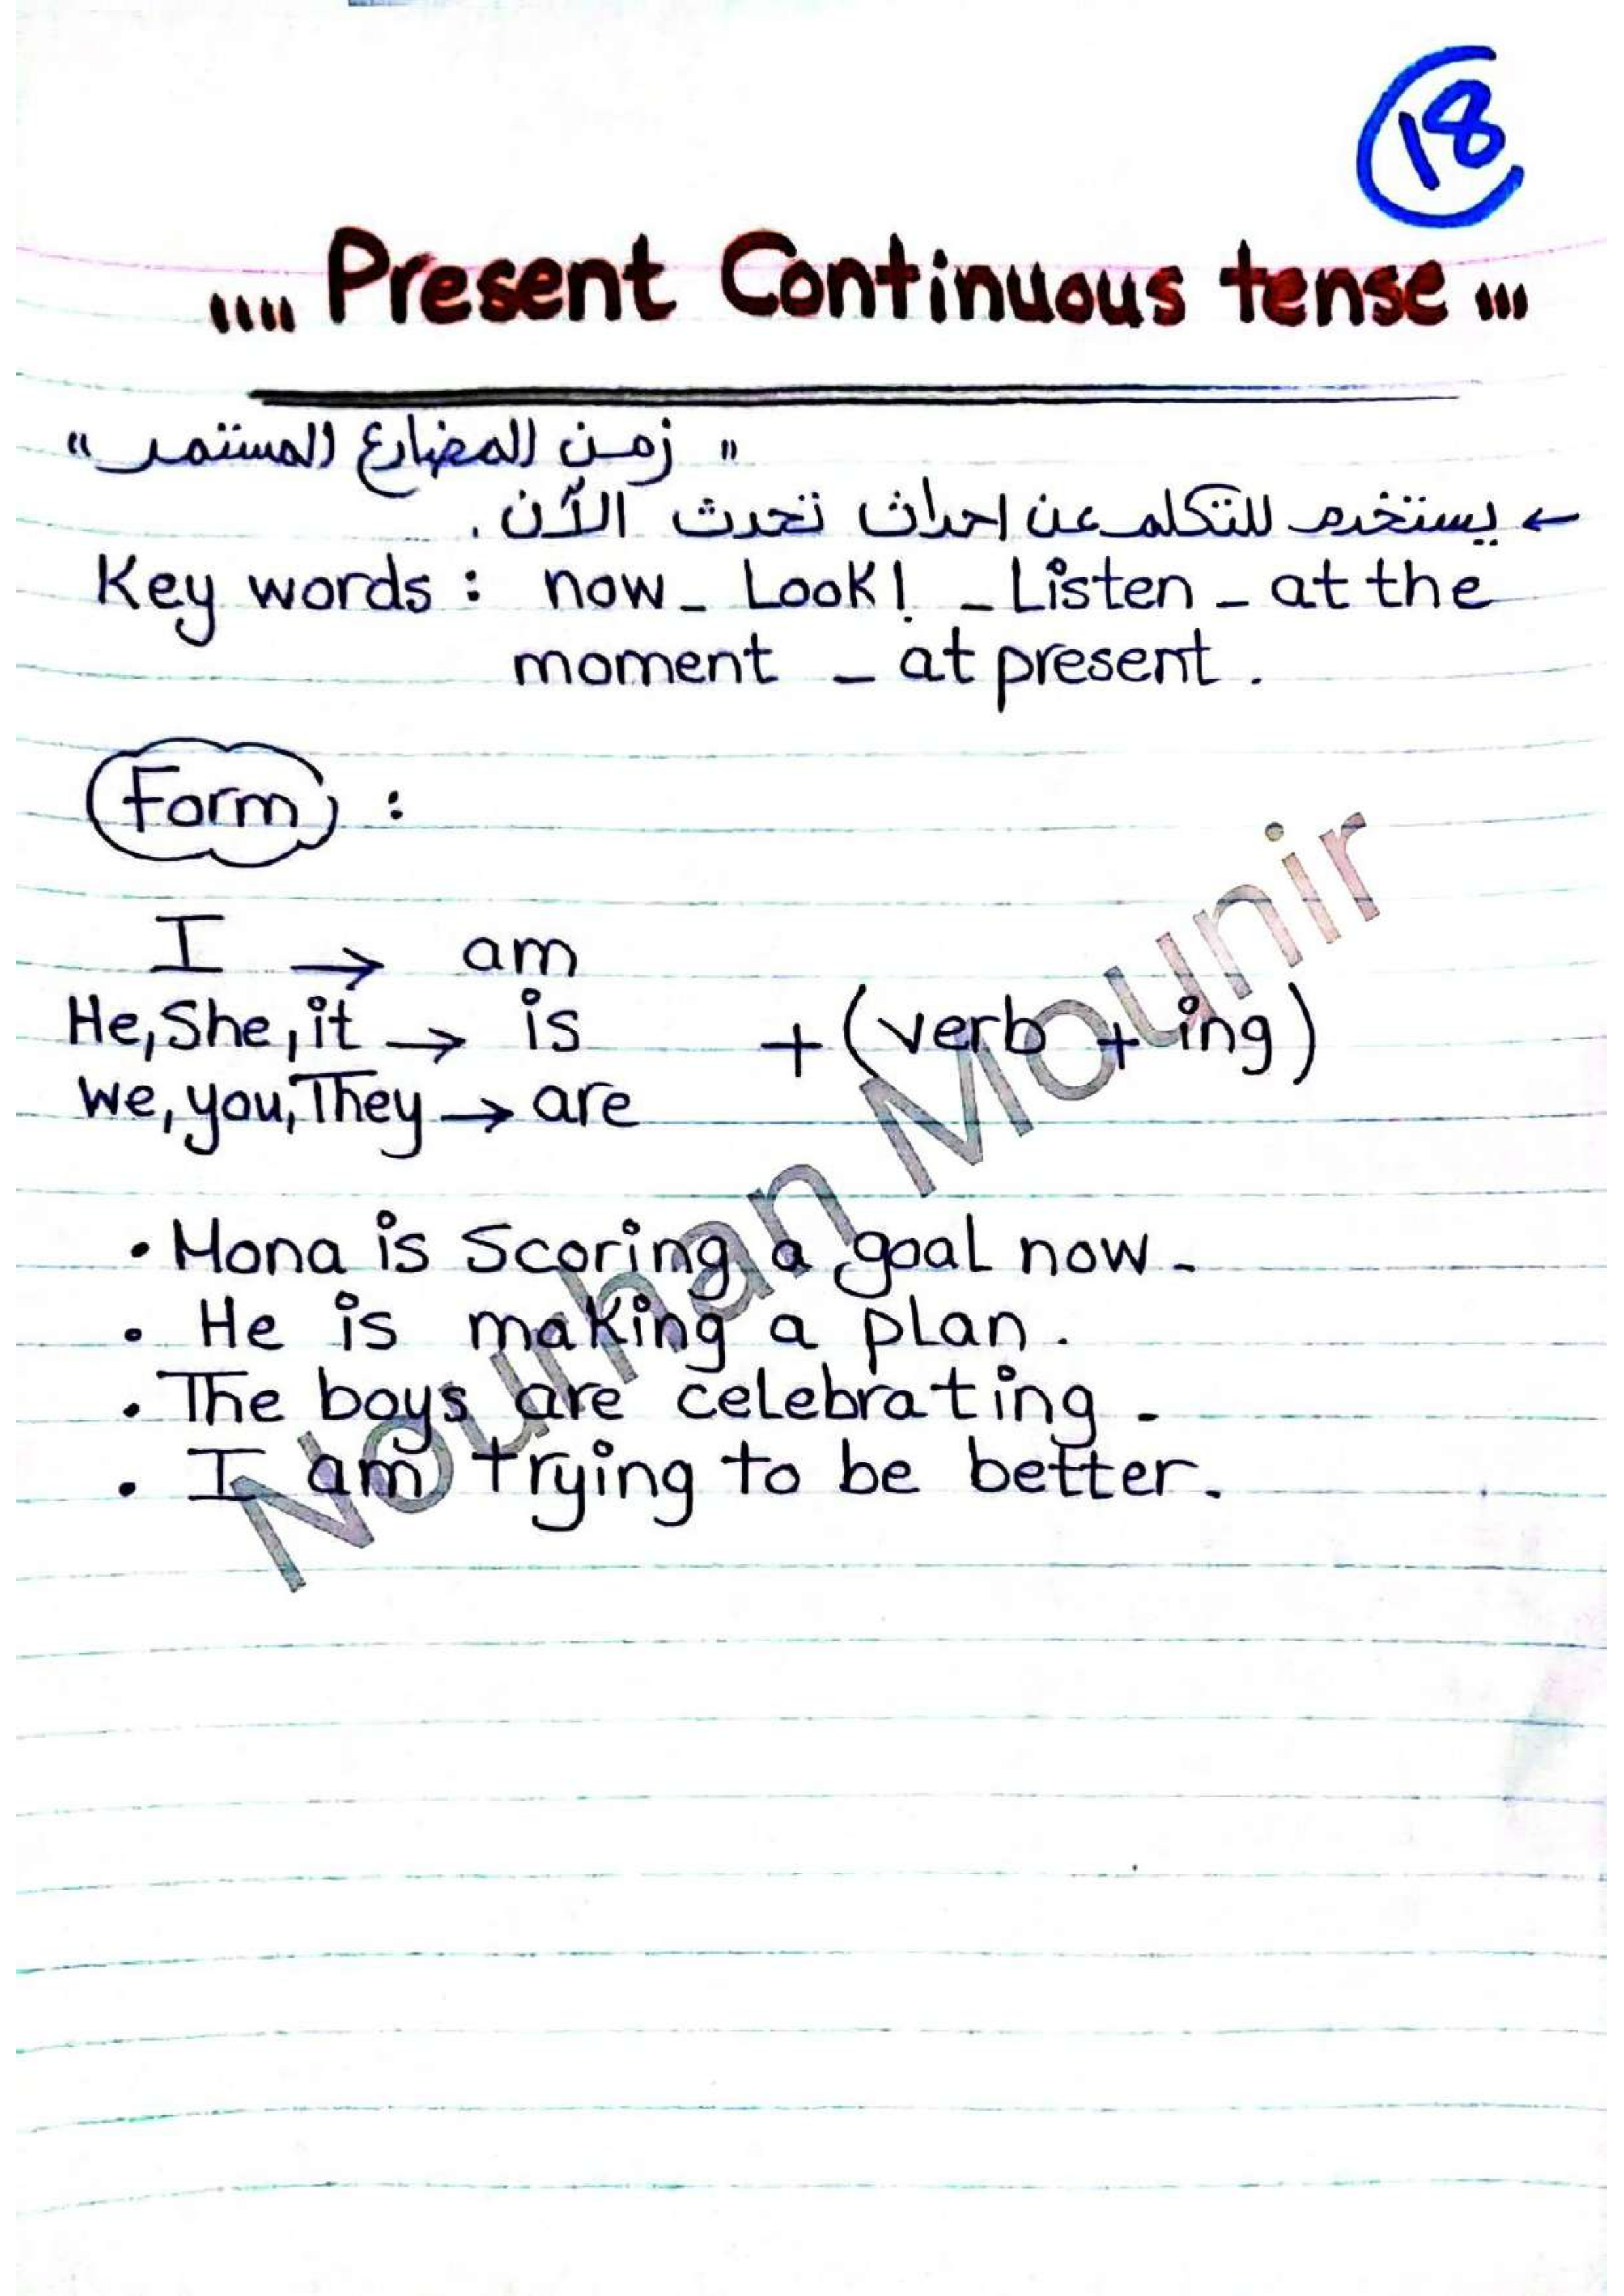 18
.... Present Continuous tense ...
" زمن المضارع المستمر "
← يستخدم للتكلم عن احداث تحدث الآن .
Key words : now - Look! - Listen - at the
moment - at present .
Form :
I → am
He, She, it → is + (verb + ing)
We, you, They → are
• Mona is Scoring a goal now -
• He is making a plan .
• The boys are celebrating -
• I am trying to be better .
Nourhan Mounir